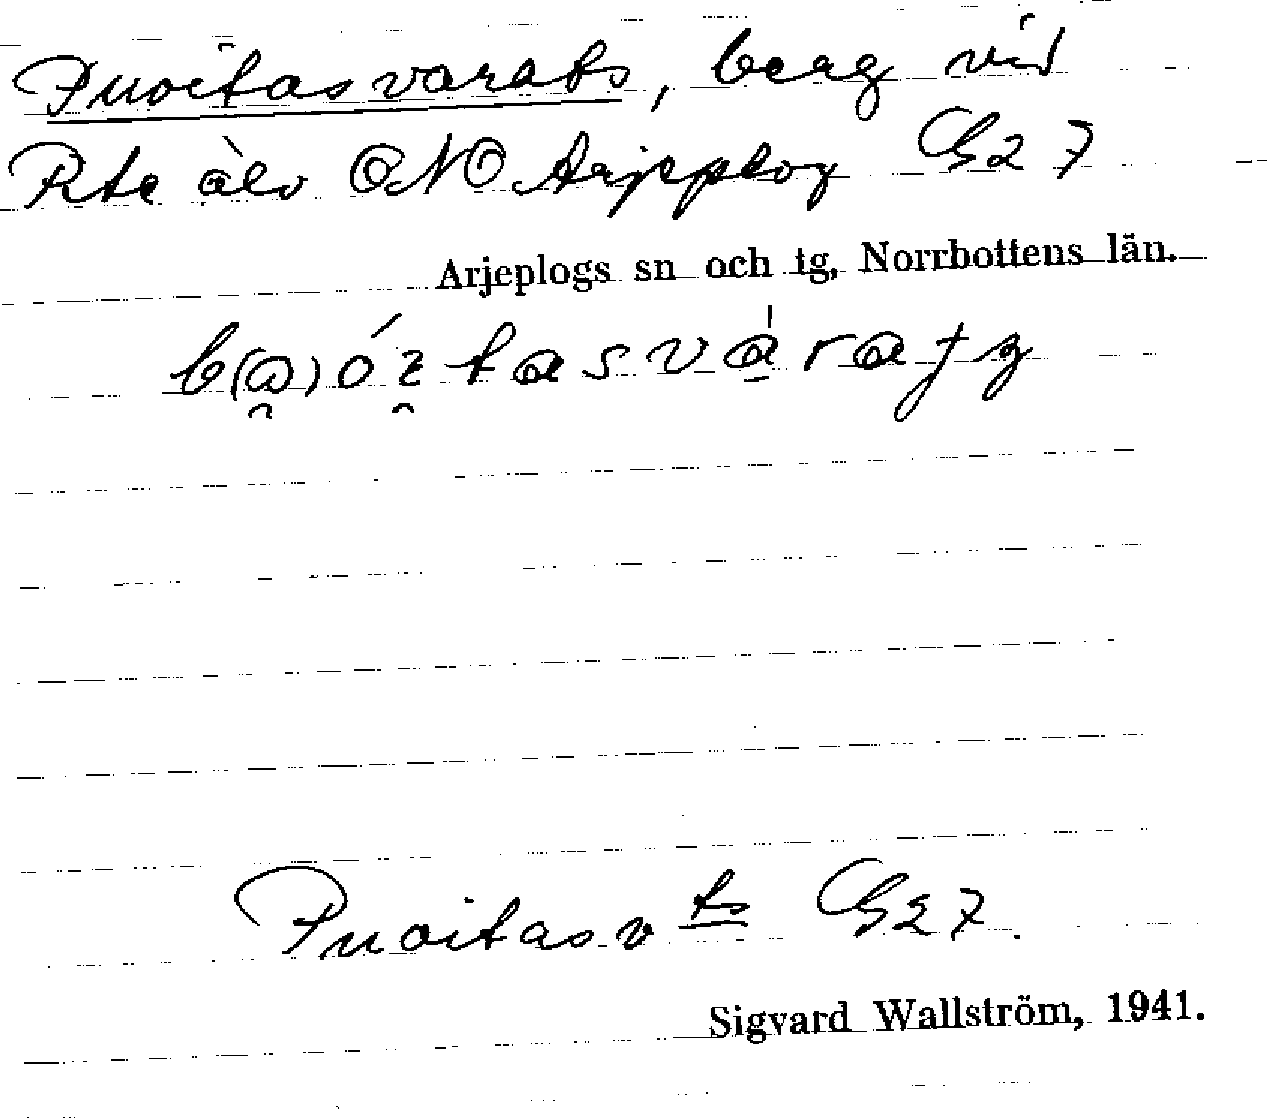 Puoitasvarats, berg vid
Pite älv ONO Arjeplog G27
Arjeplogs sn och tg, Norrbottens län.
Puoitasv ts G27.
Sigvard Wallström, 1941.